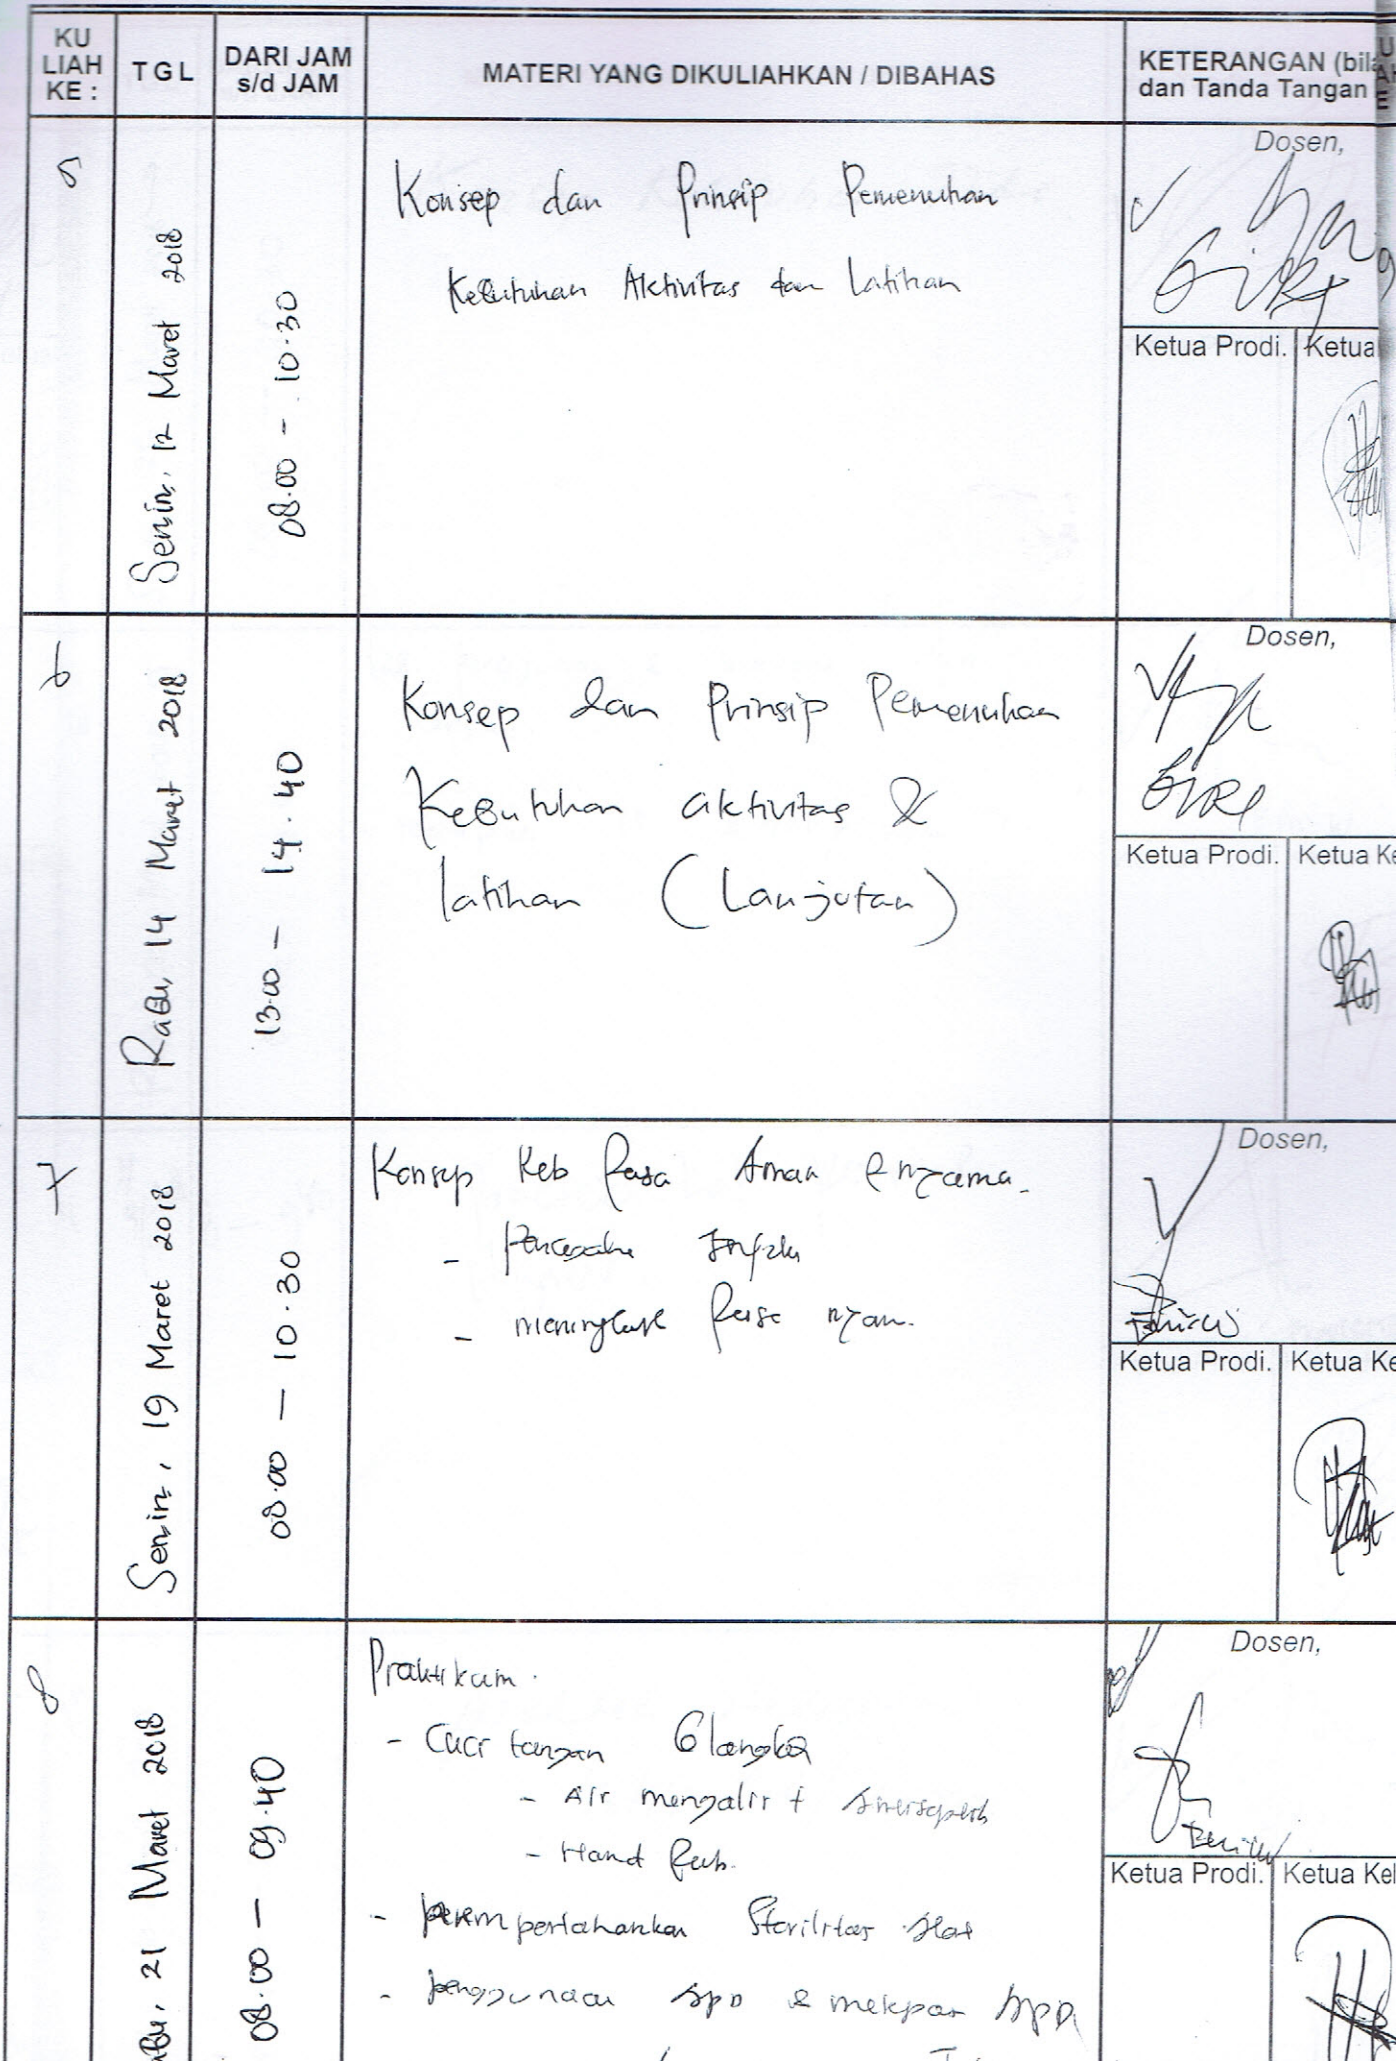 KU
LIAH
KE :
TGL
DARI JAM
s/d JAM
MATERI YANG DIKULIAHKAN / DIBAHAS
KETERANGAN (bila
dan Tanda Tangan
5
Senin, 12 Maret 2018
08.00 - 10.30
Konsep dan Prinsip Pemenuhan
Kebutuhan Aktivitas dan Latihan
Dosen,
Ketua Prodi.
Ketua
6
Rabu, 14 Maret 2018
13.00 - 14.40
Konsep dan Prinsip Pemenuhan
Kebutuhan aktivitas &
latihan (Lanjutan)
Dosen,
Ketua Prodi.
Ketua Ke
7
Senin, 19 Maret 2018
08.00 - 10.30
Konsep Keb Rasa Aman
-
- Rasa
Dosen,
Ketua Prodi.
Ketua Ke
8
abu, 21 Maret 2018
08.00 - 09.40
Praktikum.
- Cuci tangan 6 langka
- Air mengalir +
- Hand Rub.
- Sterilitas alat
- penggunaan APD & APD
Dosen,
Ketua Prodi.
Ketua Kel